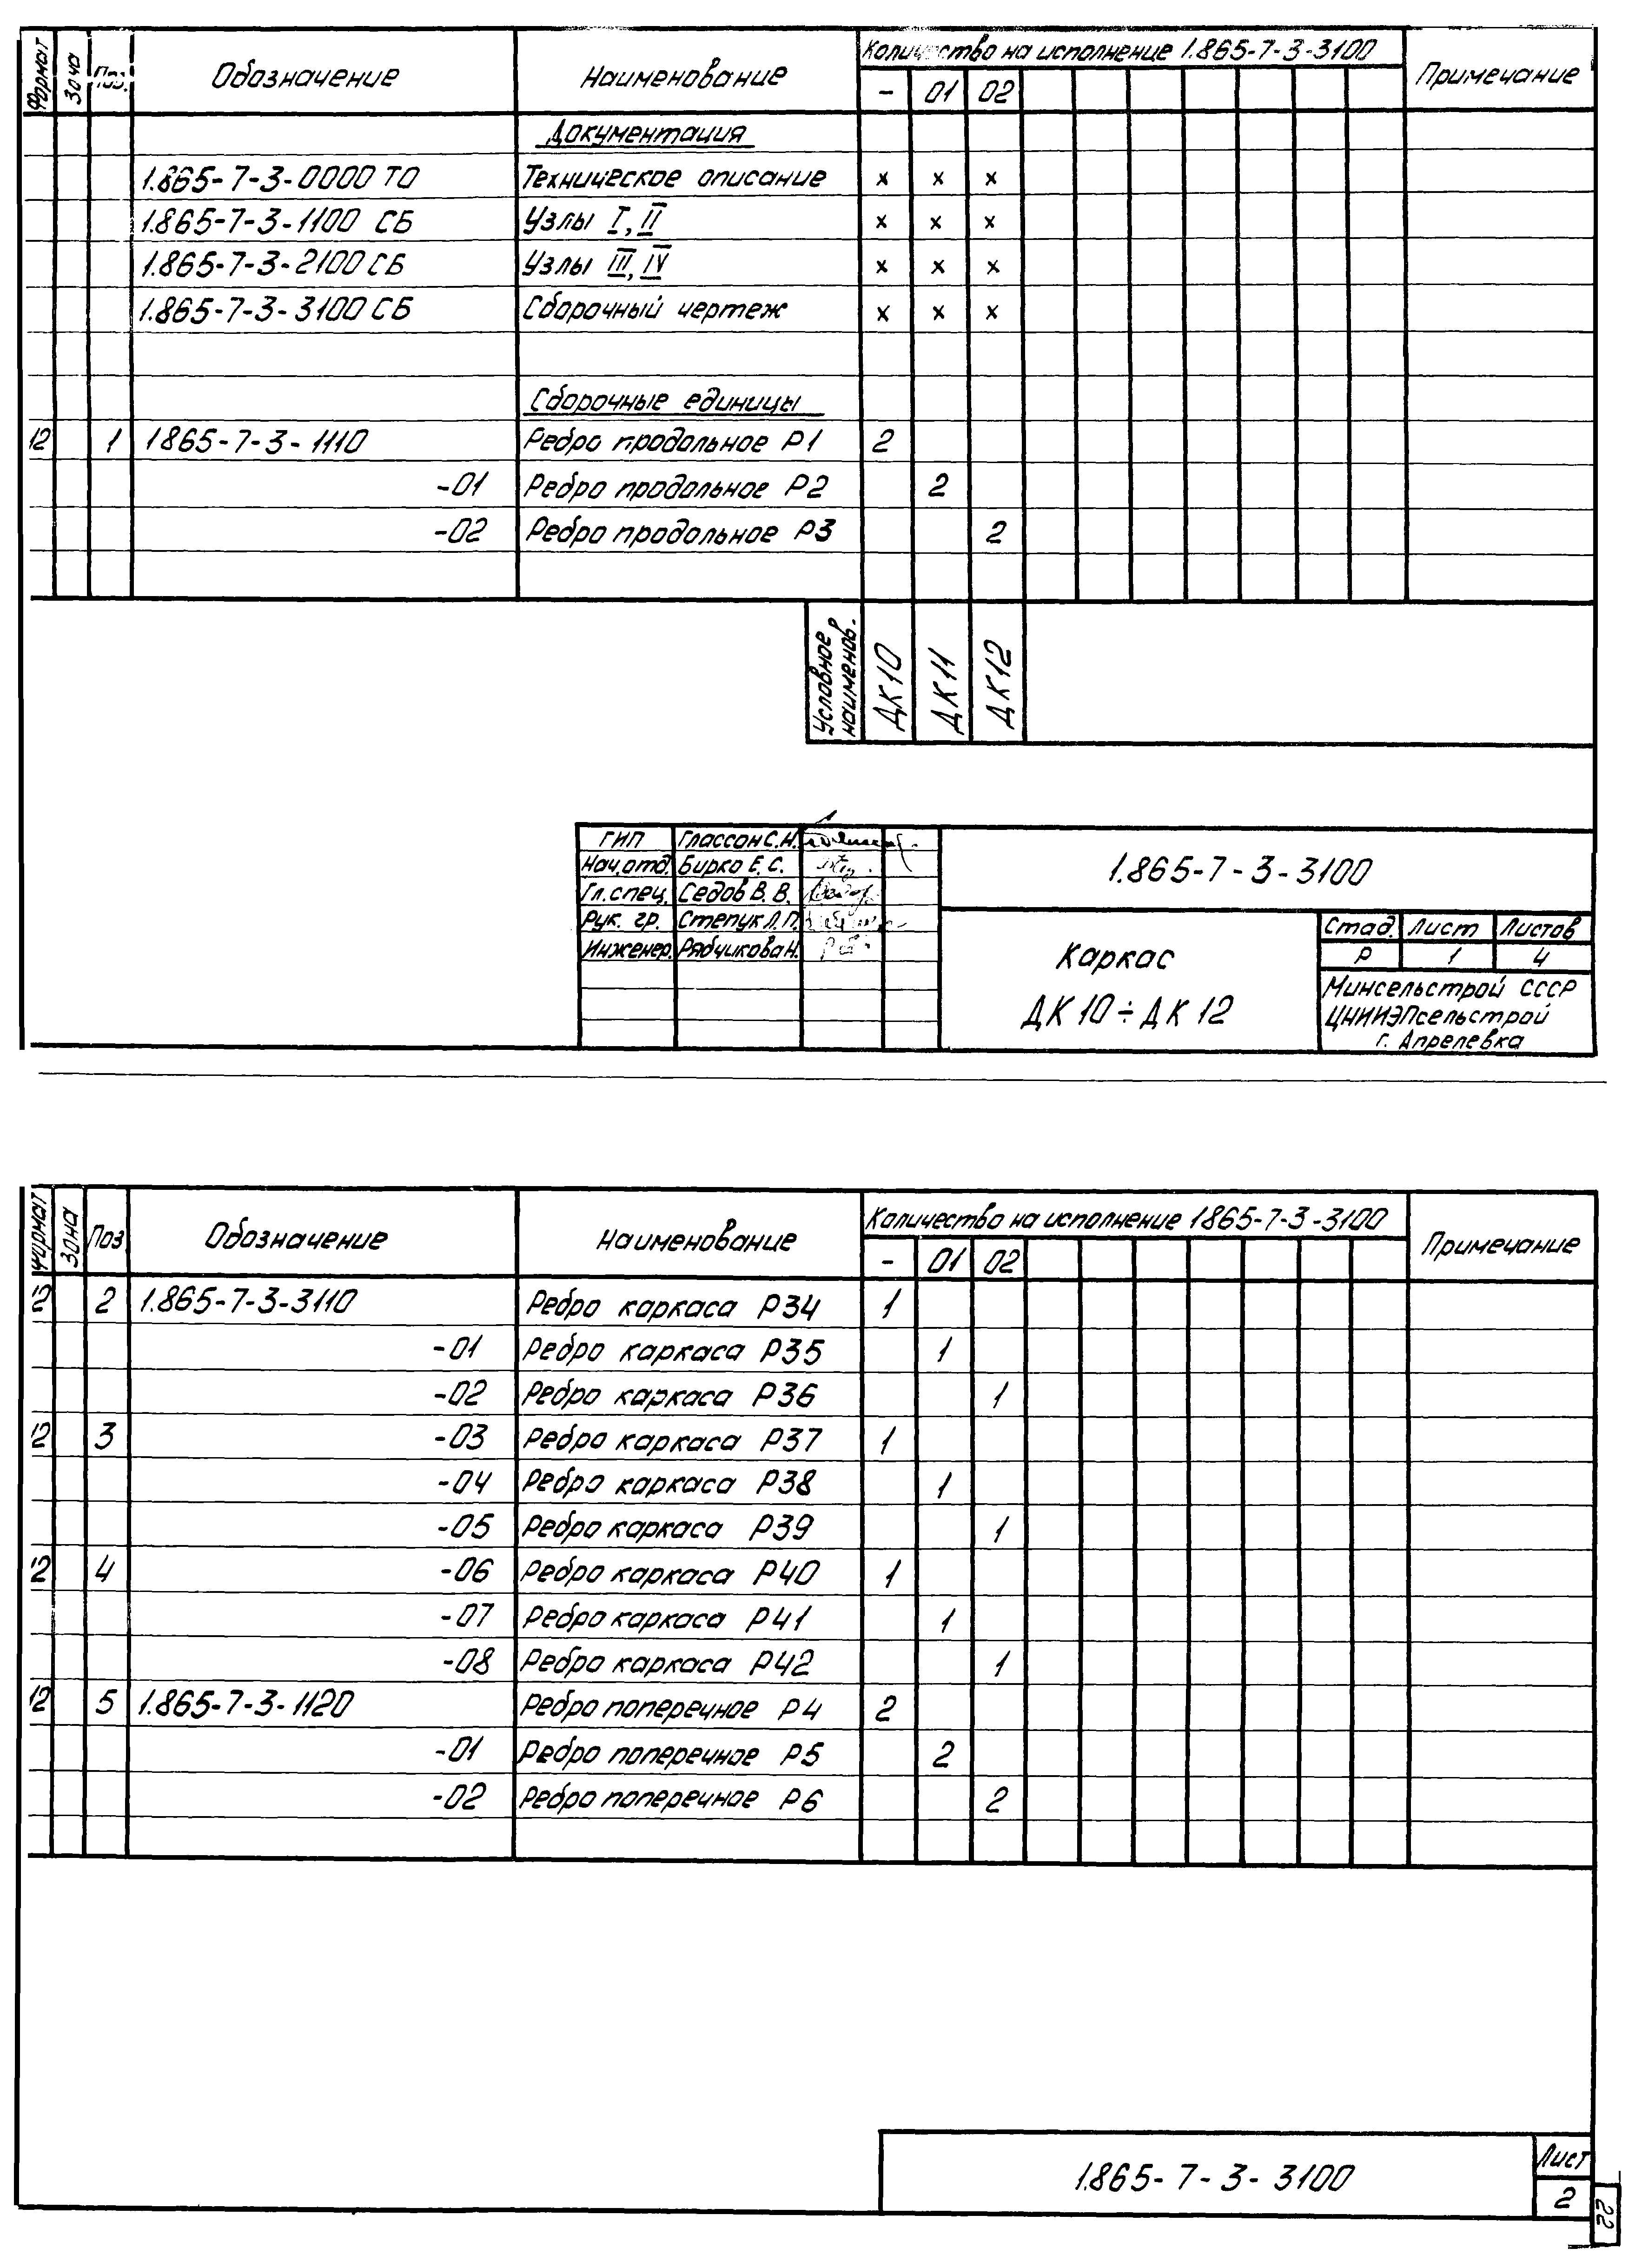 Формат Зона Поз. Обозначение Наименование Количество на исполнение 1.865-7-3-3100 Примечание
- 01 02
Документация
1.865-7-3-0000 ТО Техническое описание х х х
1.865-7-3-1100 СБ Узлы I, II х х х
1.865-7-3-2100 СБ Узлы III, IV х х х
1.865-7-3-3100 СБ Сборочный чертеж х х х
Сборочные единицы
12 1 1865-7-3-1110 Ребро продольное Р1 2
-01 Ребро продольное Р2 2
-02 Ребро продольное Р3 2
Условное наименов. ДК10 ДК11 ДК12
ГИП Глассон С.Н.
Нач.отд. Бирко Е.С.
Гл.спец. Седов В.В.
Рук. гр. Степук Л.П.
Инженер. Рябчикова Н.
1.865-7-3-3100
Каркас
ДК 10÷ДК 12
Стад. Лист Листов
Р 1 4
Минсельстрой СССР
ЦНИИЭПсельстрой
г. Апрелевка
Формат Зона Поз Обозначение Наименование Количество на исполнение 1865-7-3-3100 Примечание
- 01 02
12 2 1.865-7-3-3110 Ребро каркаса Р34 1
-01 Ребро каркаса Р35 1
-02 Ребро каркаса Р36 1
12 3 -03 Ребро каркаса Р37 1
-04 Ребро каркаса Р38 1
-05 Ребро каркаса Р39 1
12 4 -06 Ребро каркаса Р40 1
-07 Ребро каркаса Р41 1
-08 Ребро каркаса Р42 1
12 5 1.865-7-3-1120 Ребро поперечное Р4 2
-01 Ребро поперечное Р5 2
-02 Ребро поперечное Р6 2
1.865-7-3-3100
Лист
2
22